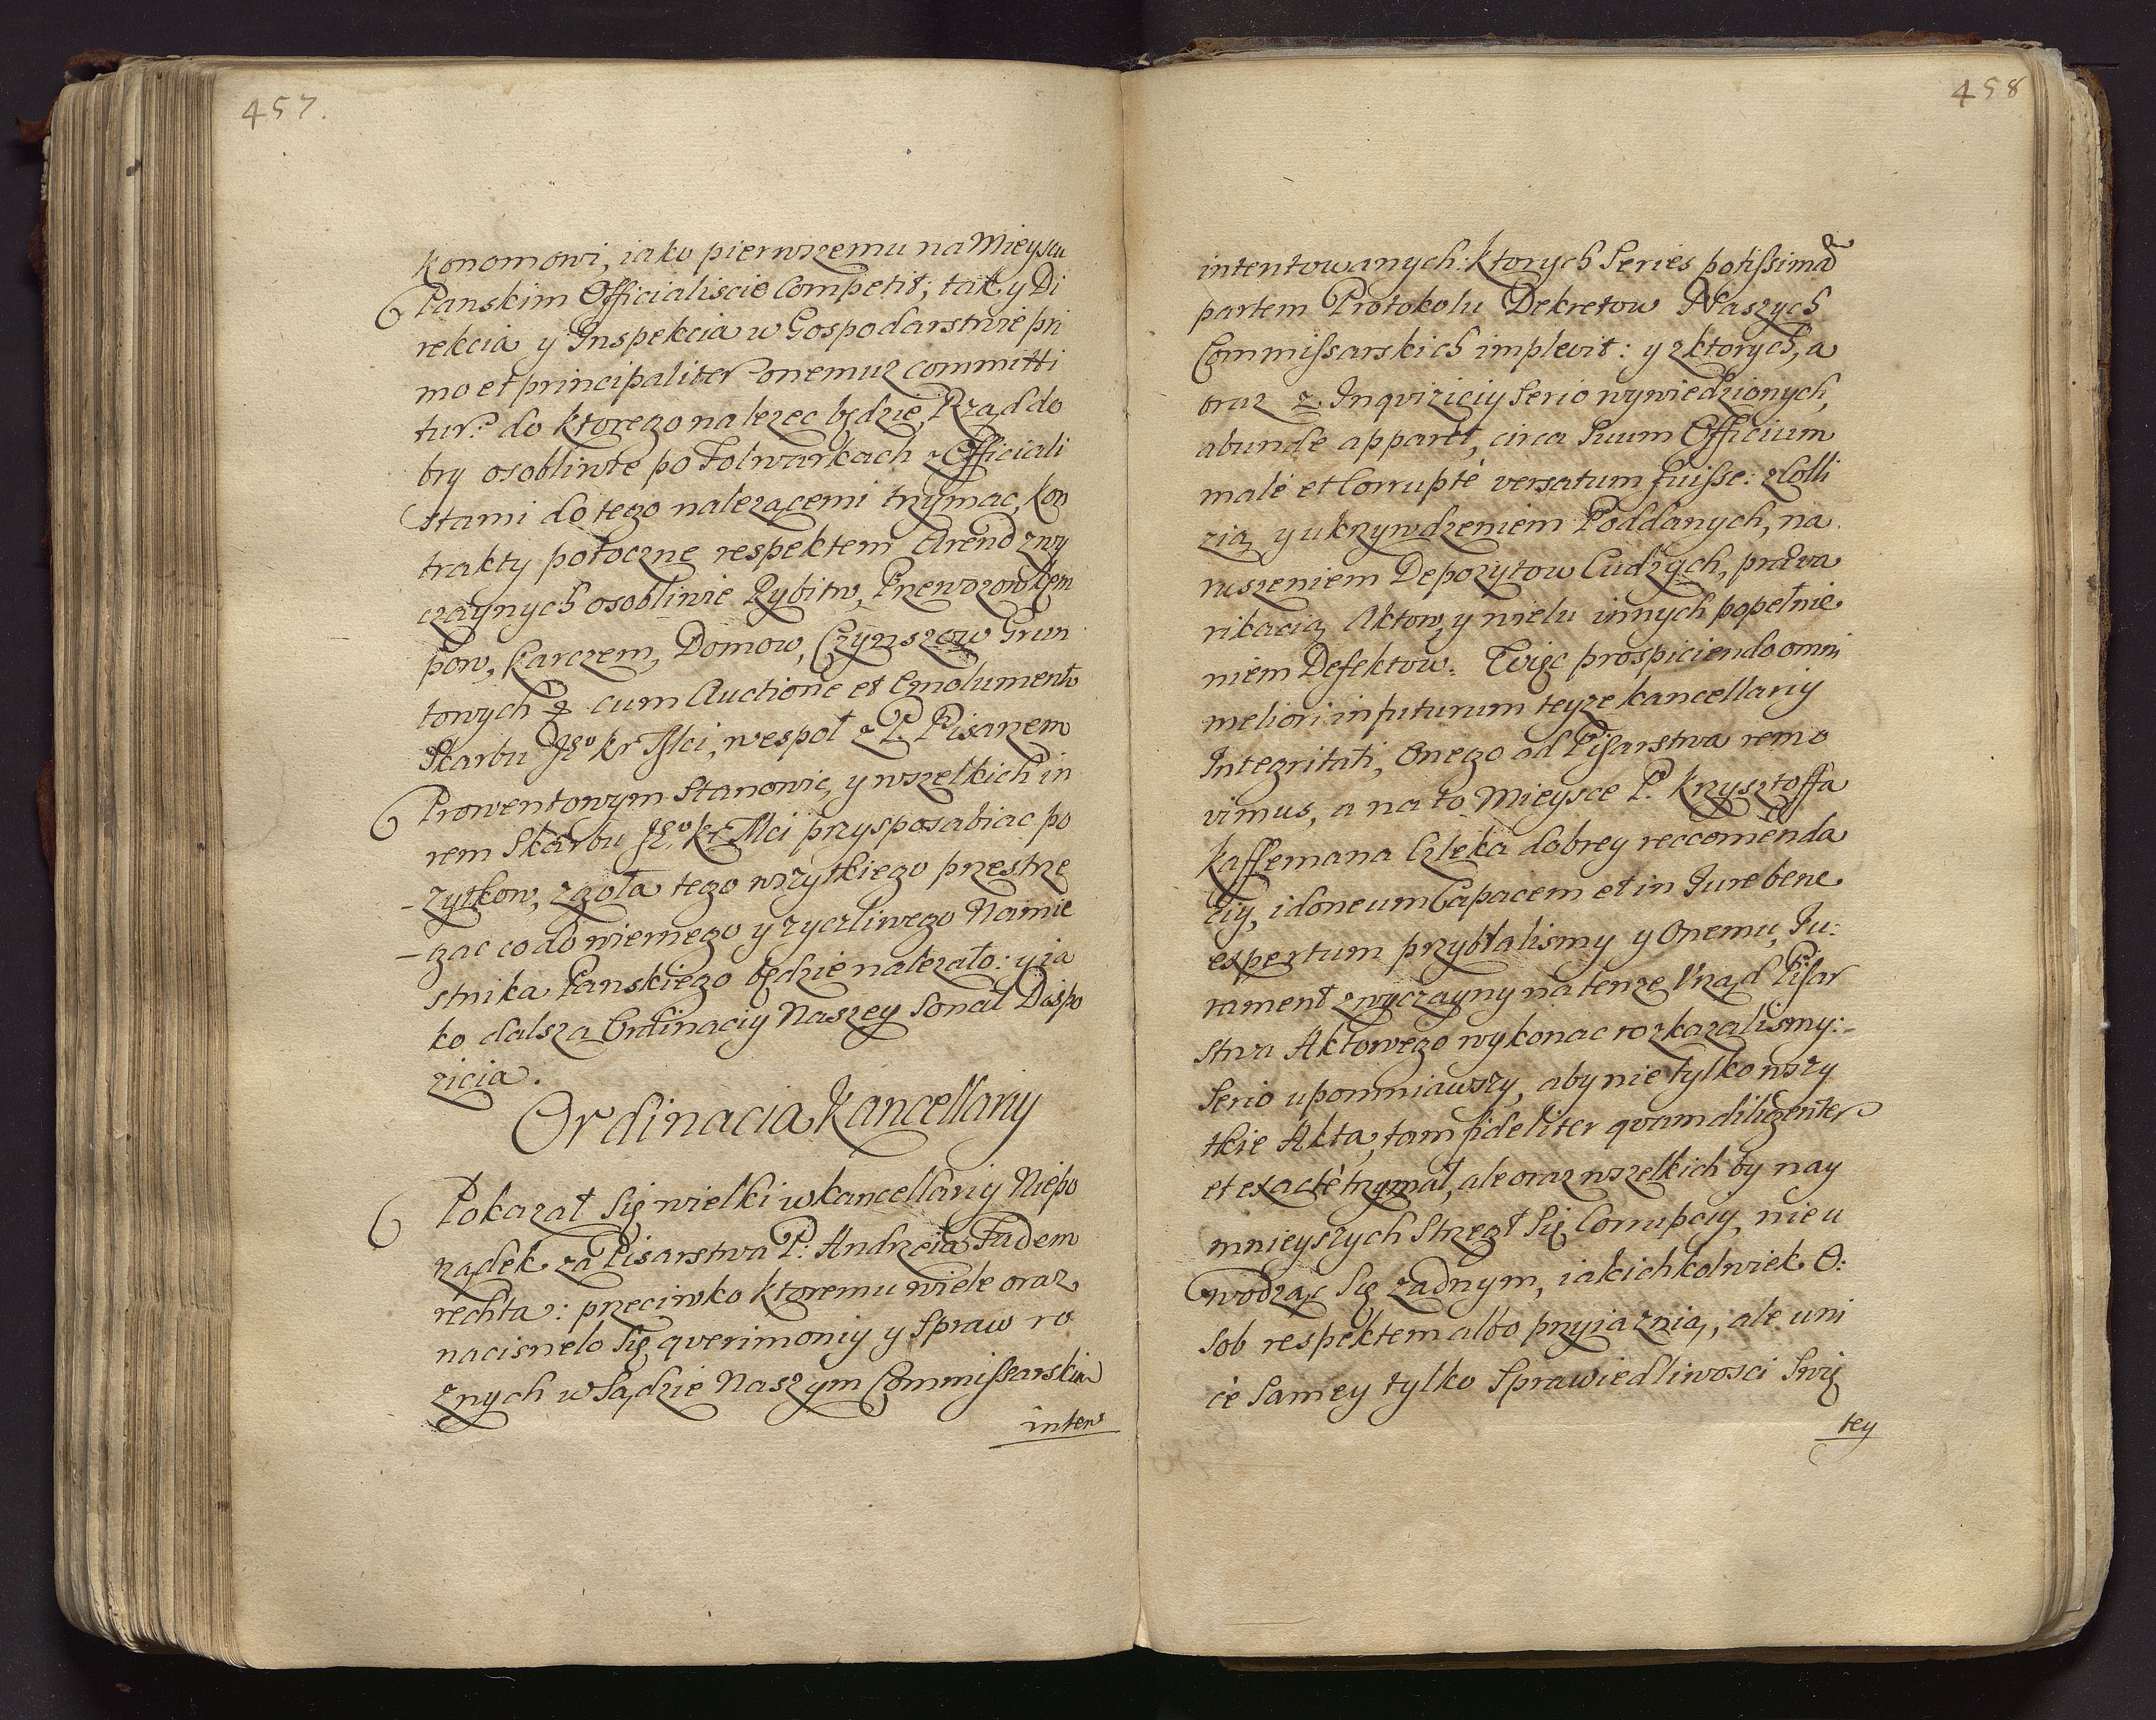 457.
konomowi, iako pierwszemu na Mieyscu
Panskim Officialiscie Competit; tak y Di
rekcia y Inspekcia w Gospodarstwie pri
mo et principaliter onemuz committi
tur: do ktorego nalezec będzie, Rząd do
bry osobliwie po Folwarkach z Officiali
stami do tego nalezącemi trzymac, Kon
trakty potoczne respektem Arend zwy
czaynych osobliwie Rybitw, Przewozow
pow, Karczem, Domow, Czynszow Grun
towych & cum Auctione et Emolumento
Skarbu JKr Mci, wespoł z P. Pisarzem
Prowentowym Stanowic, y wszelkich in
rem Skarbu JKr Mci przysposabiac po
zytkow, zgoła tego wszytkiego przestrze
gac co do wiernego y zyczliwego Namie
stnika Panskiego będzie nalezało: y ia
ko dalsza Ordinaciy Naszey Sonat Dispo
zicia.
Ordinacia Kancellariy
Pokazał Się wielki w kancellariy Niepo
rządek za Pisarstwa P: Andrzeia Fadem
rechta: przeciwko ktoremu wiele oraz
nacisnelo Się querimoniy y Spraw ro
znych w Sądzie Naszym Commissarskim
inten
458
intentowanych: ktorych Series potissima
partem Protokolu Dekretow Naszych
Commissarskich implevit: y z ktorych, a
oraz z Inqviziciy Serio wywiedzionych,
abunde apparet, circa Suum Officium
malè et Corruptè versatum fuisse: z Colli
zią y ukrzywdzeniem Poddanych, na
ruszeniem Depozytow Cudzych, prawa
rikacią Aktow, y wielu innych popełnie
niem Defektow. Więc prospiciendo omni
meliori in futurum teyze kancellariy
Integritati, Onego od Pisarstwa remo
vimus, a na to Mieysce P. Krzysztoffa
Kaffemana Czleka dobrey reccomenda
ciy, idoneum Capacem et in Jure bene
expertum przybralismy y Onemu, Ju:
rament zwyczayny na tenze Vrząd Pisar
stwa Aktowego wykonac rozkazalismy:
Serio upomniawszy, aby nie tylko wszy
tkie Akta, tam fideliter qvam diligenter
et exactè trzymał, ale oraz wszelkich by nay
mnieyszych Strzegł Się Corrupciy, nie u
wodząc Się zadnym, iakichkolwiek O:
sob respektem albo przyiaznią, ale uni
cè Samey tylko Sprawiedliwosci Swię
tey